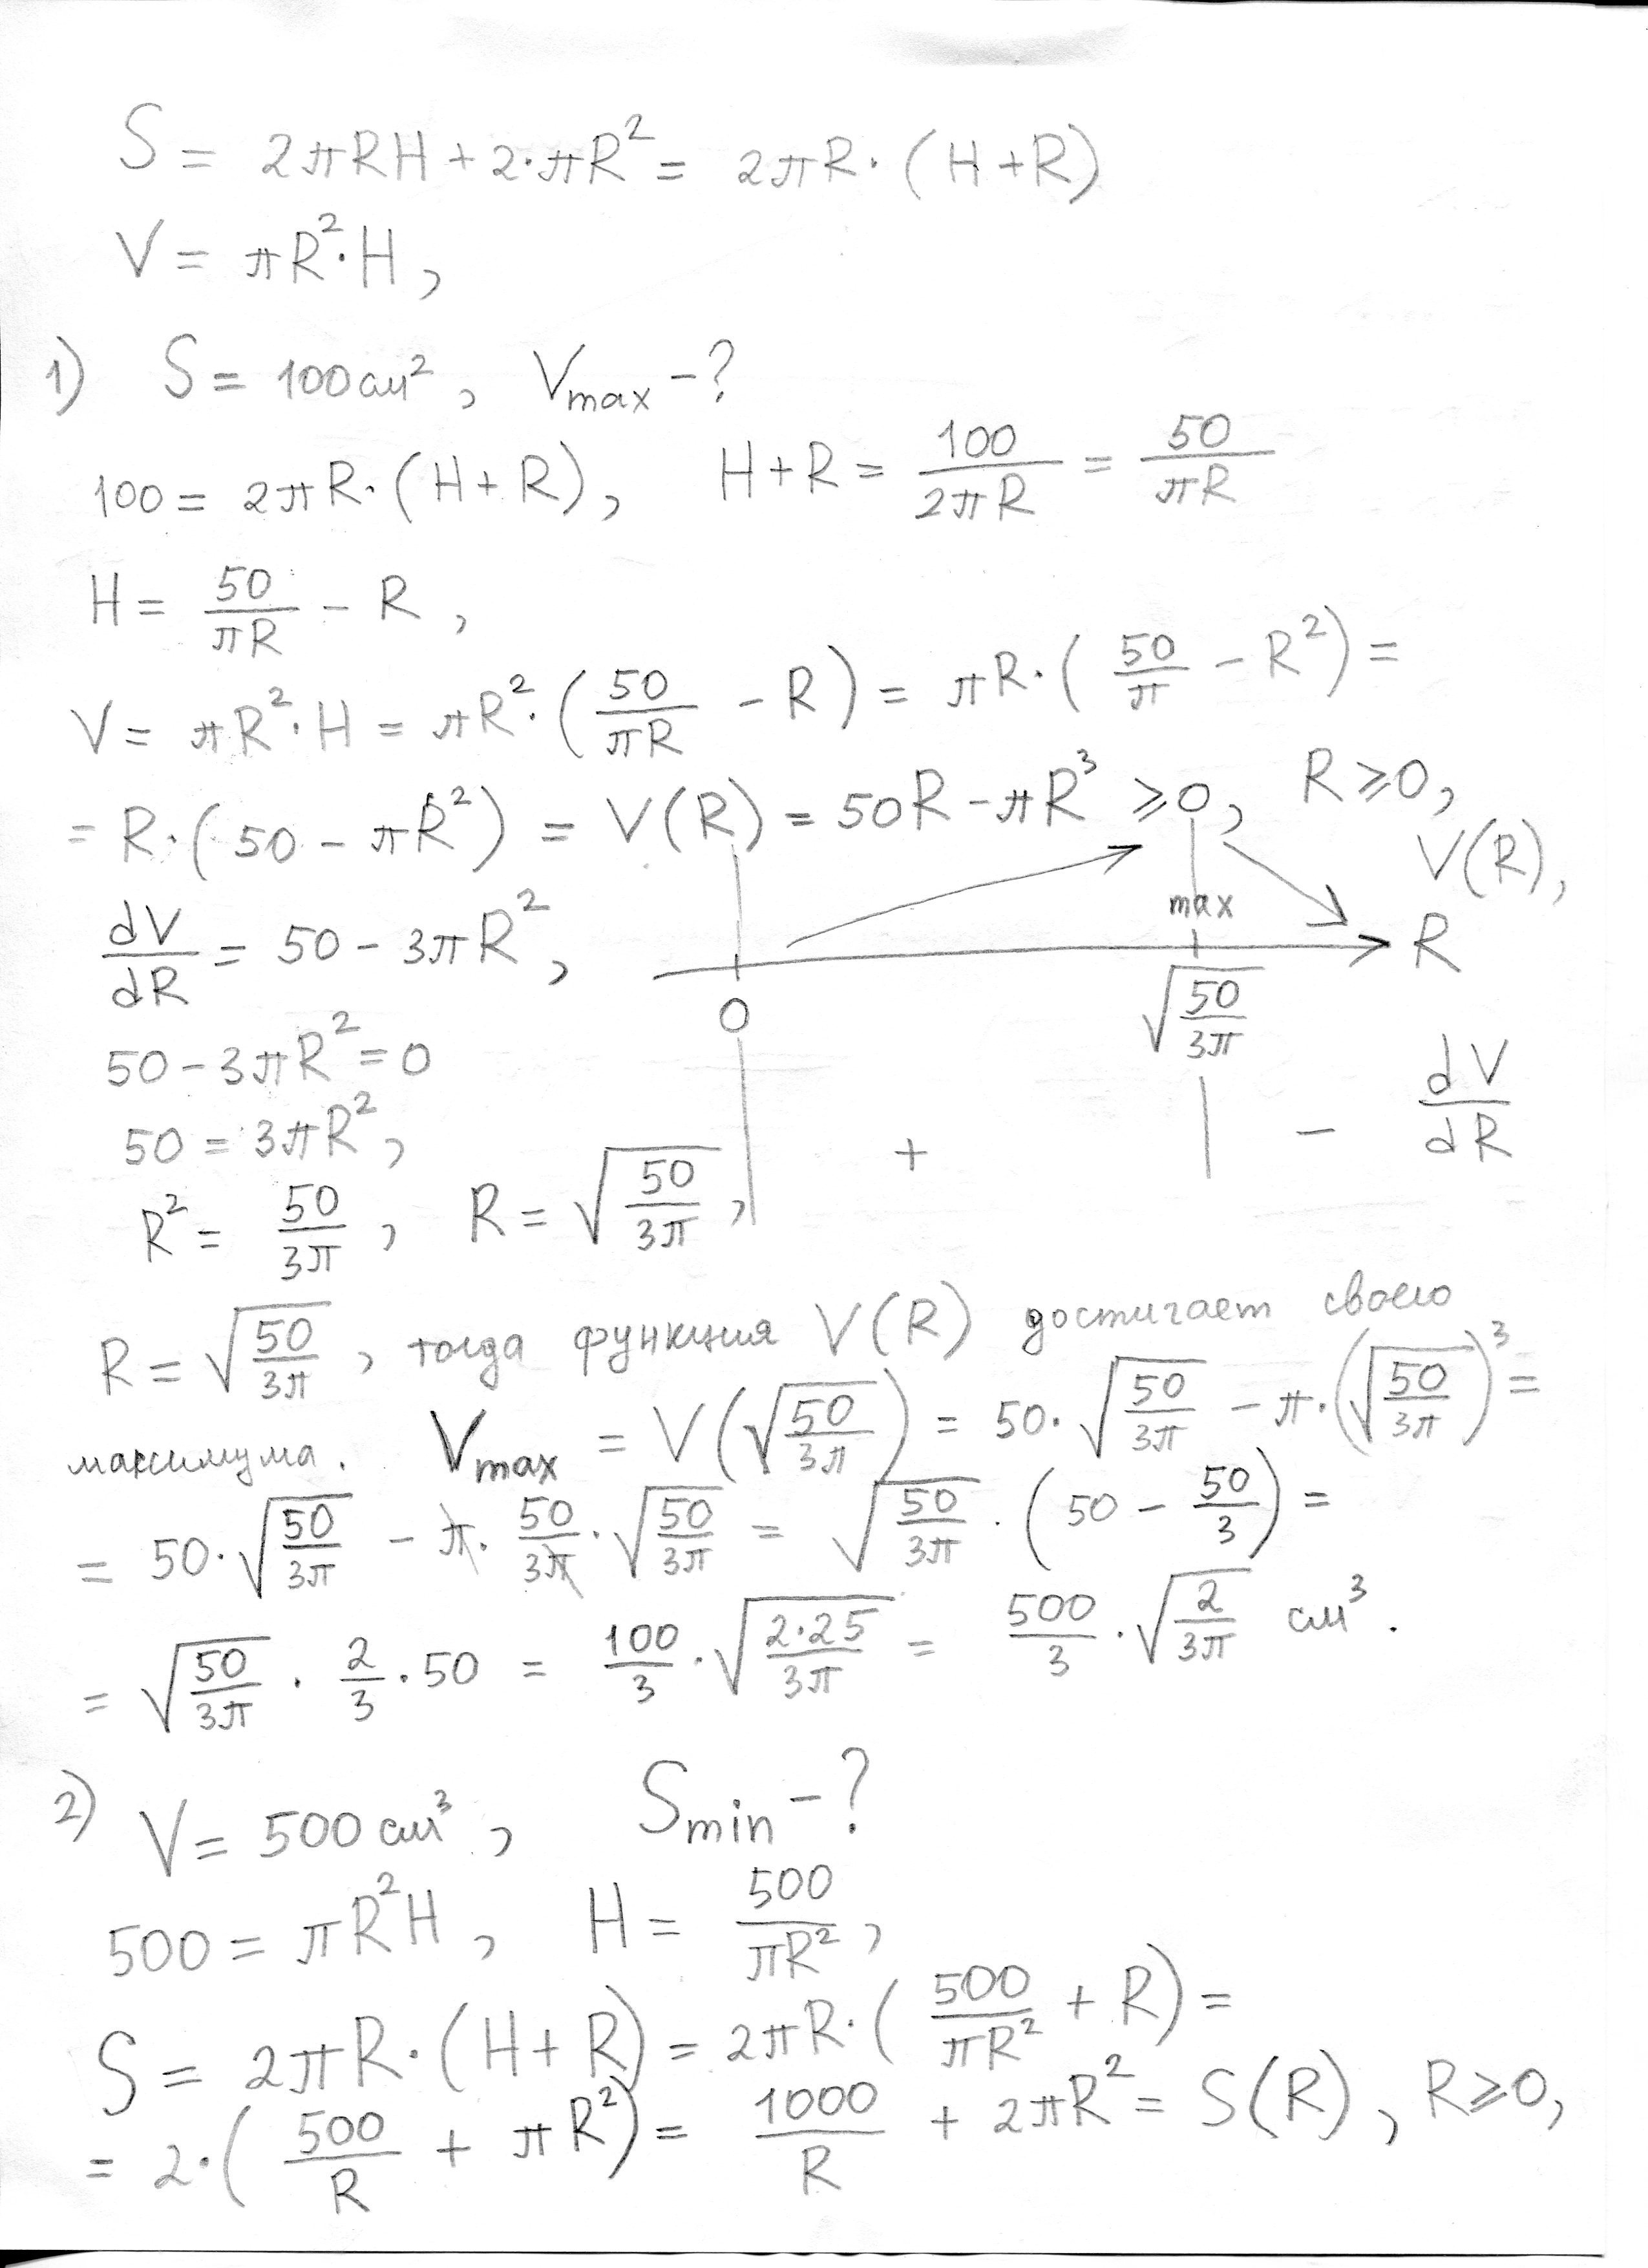 S = 2πRH + 2·πR² = 2πR·(H+R)
V = πR²·H,
1) S = 100 см², Vmax - ?
100 = 2πR·(H+R), H+R = 100/2πR = 50/πR
H = 50/πR - R,
V = πR²·H = πR²·(50/πR - R) = πR·(50/π - R²) =
= R·(50 - πR²) = V(R) = 50R - πR³ ⩾ 0, R ⩾ 0,
V(R),
max
dV/dR = 50 - 3πR²,
R
0 √(50/3π)
50 - 3πR² = 0
dV/dR
50 = 3πR²,
+ -
R² = 50/3π, R = √(50/3π),
R = √(50/3π), тогда функция V(R) достигает своего
максимума. Vmax = V(√(50/3π)) = 50·√(50/3π) - π·(√(50/3π))³ =
= 50·√(50/3π) - π·50/3π·√(50/3π) = √(50/3π)·(50 - 50/3) =
= √(50/3π)·2/3·50 = 100/3·√(2·25/3π) = 500/3·√(2/3π) см³.
2) V = 500 см³, Smin - ?
500 = πR²H, H = 500/πR²,
S = 2πR·(H+R) = 2πR·(500/πR² + R) =
= 2·(500/R + πR²) = 1000/R + 2πR² = S(R), R ⩾ 0,